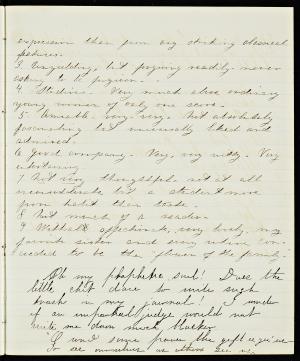 expression than from any striking classical
features.
3. Unyielding, but forgiving readily. never
asking to be forgiven.
4. Studious. Very much above ordinary
young women of only one score.
5. Amiable, very, very. Not absolutely
fascinating but universally liked and
admired.
6 Good company. Very, very witty. Very
entertaining
7 Not very thoughtful, not at all
inconsiderate but a student more
from habit than taste.
8 Not much of a reader.
9 Withal affectionate, very lovely, my
favorite sister and every where con-
ceeded to be the "flower of the family."
Oh my prophetic soul! Dare the
little chit dare to write such
trash in my journal! I wonder
if an impartial judge would not
write me down much blacker
"O wad some power the giftie gie us
To see ourselves as others see us"